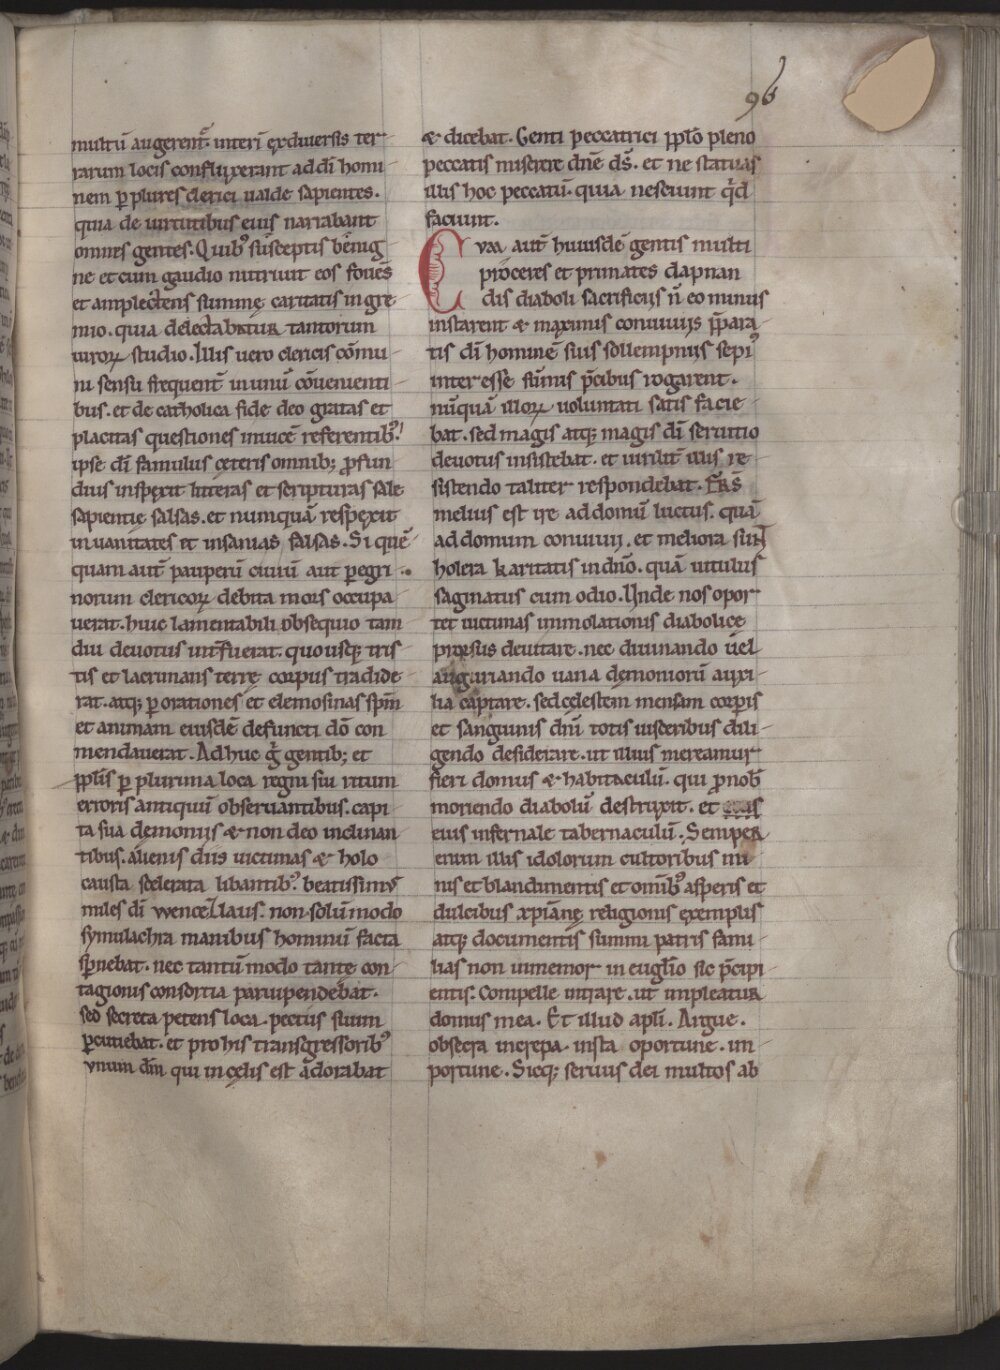 96
multũ augerent᷑. interĩ ex diuersis ter-
rarum locis confluxerant ad dĩ homi-
nem ꝑ plures clerici ualde sapientes.
quia de uirtutibus eius narrabant
omnes gentes. Quibꝰ susceptis benig-
ne et cum gaudio nutriuit eos fouẽs
et amplectens summę caritatis in gre-
mio. quia delectabatur tantorum
uiroꝝ studio. Illis uero clericis cõmu-
ni sensu frequent᷑ in unũ cõuenienti-
bus. et de catholica fide deo gratas et
placitas questiones inuicẽ referentibꝰ.
ipse dĩ famulus ceteris omnibꝫ ꝓfun-
dius inspexit litteras et scripturas sale
sapientię salsas. et numquã respexit
in uanitates et insanias falsas. Si quẽ-
quam aut̃ pauperũ ciuiũ aut ꝑegri-
norum clericoꝝ debita mors occupa-
uerat. huic lamentabili obsequio tam
diu deuotus int̃fuerat. quousqꝫ tris-
tis et lacrimans terrę corpus tradide-
rat. atqꝫ ꝑ orationes et elemosinas sp̃m
et animam eiusdẽ defuncti dõ con-
mendauerat. Adhuc g̊ gentibꝫ et
ppl̃is ꝑ plurima loca regni sui ritum
erroris antiquũ obseruantibus. capi-
ta sua demoniis & non deo inclinan-
tibus. alienis diis uictimas & holo-
causta scelerata libantibꝰ. beatissimꝰ
miles dĩ wencezlaus. non solũ modo
symulachra manibus hominũ facta
sꝑnebat. nec tantũ modo tantę con-
tagionis consortia paruipendebat.
sed secreta petens loca. pectus suum
ꝑcutiebat. et pro his transgressoribꝰ
vnum dm̃ qui in cęlis est adorabat
& dicebat. Genti peccatrici ppl̃o pleno
peccatis miserere dñe ds̃. et ne statuas
illis hoc peccatũ. quia nesciunt qͥd
faciunt.
Cvm aut̃ huiusdẽ gentis multi
proceres et primates clapnan-
dis diaboli sacrificiis ñ eo minus
instarent & maximis conuiuiis p̃para-
tis dĩ hominẽ suis sollempniis sepiꝰ
interesse sũmis p̃cibus rogarent.
nũquã illoꝝ uoluntati satis facie-
bat. sed magis atqꝫ magis dĩ seruitio
deuotus insistebat. et uirilit᷑ illis re-
sistendo taliter respondebat. FRS̃
melius est ire ad domũ luctus. quã
ad domum conuiuii. et meliora sunt
holera karitatis in dño. quã uitulus
saginatus cum odio. Unde nos opor-
tet uictimas immolationis diabolicę
prorsus deuitare. nec diuinando uel
auguriando uana demoniorũ auxi-
lia captare. sed celestem mensam corꝑis
et sanguinis dñi totis uisceribus dili-
gendo desiderare. ut illius mereamur
fieri domus & habitaculũ. qui ꝓ nob̃
moriendo diabolũ destruxit. et
eius infernale tabernaculũ. Semper
enim illis idolorum cultoribus mi-
nis et blandimentis et om̃ibꝰ asperis et
dulcibus xp̃ianę religionis exemplis
atqꝫ documentis summi patris fami-
lias non inmemor in eugl̃io sic p̃cipi-
entis. Compelle intrare. ut impleatur
domus mea. Et illud apl̃i. Argue.
obsecra increpa. insta oportune. im-
portune. Sicqꝫ seruus dei multos ab